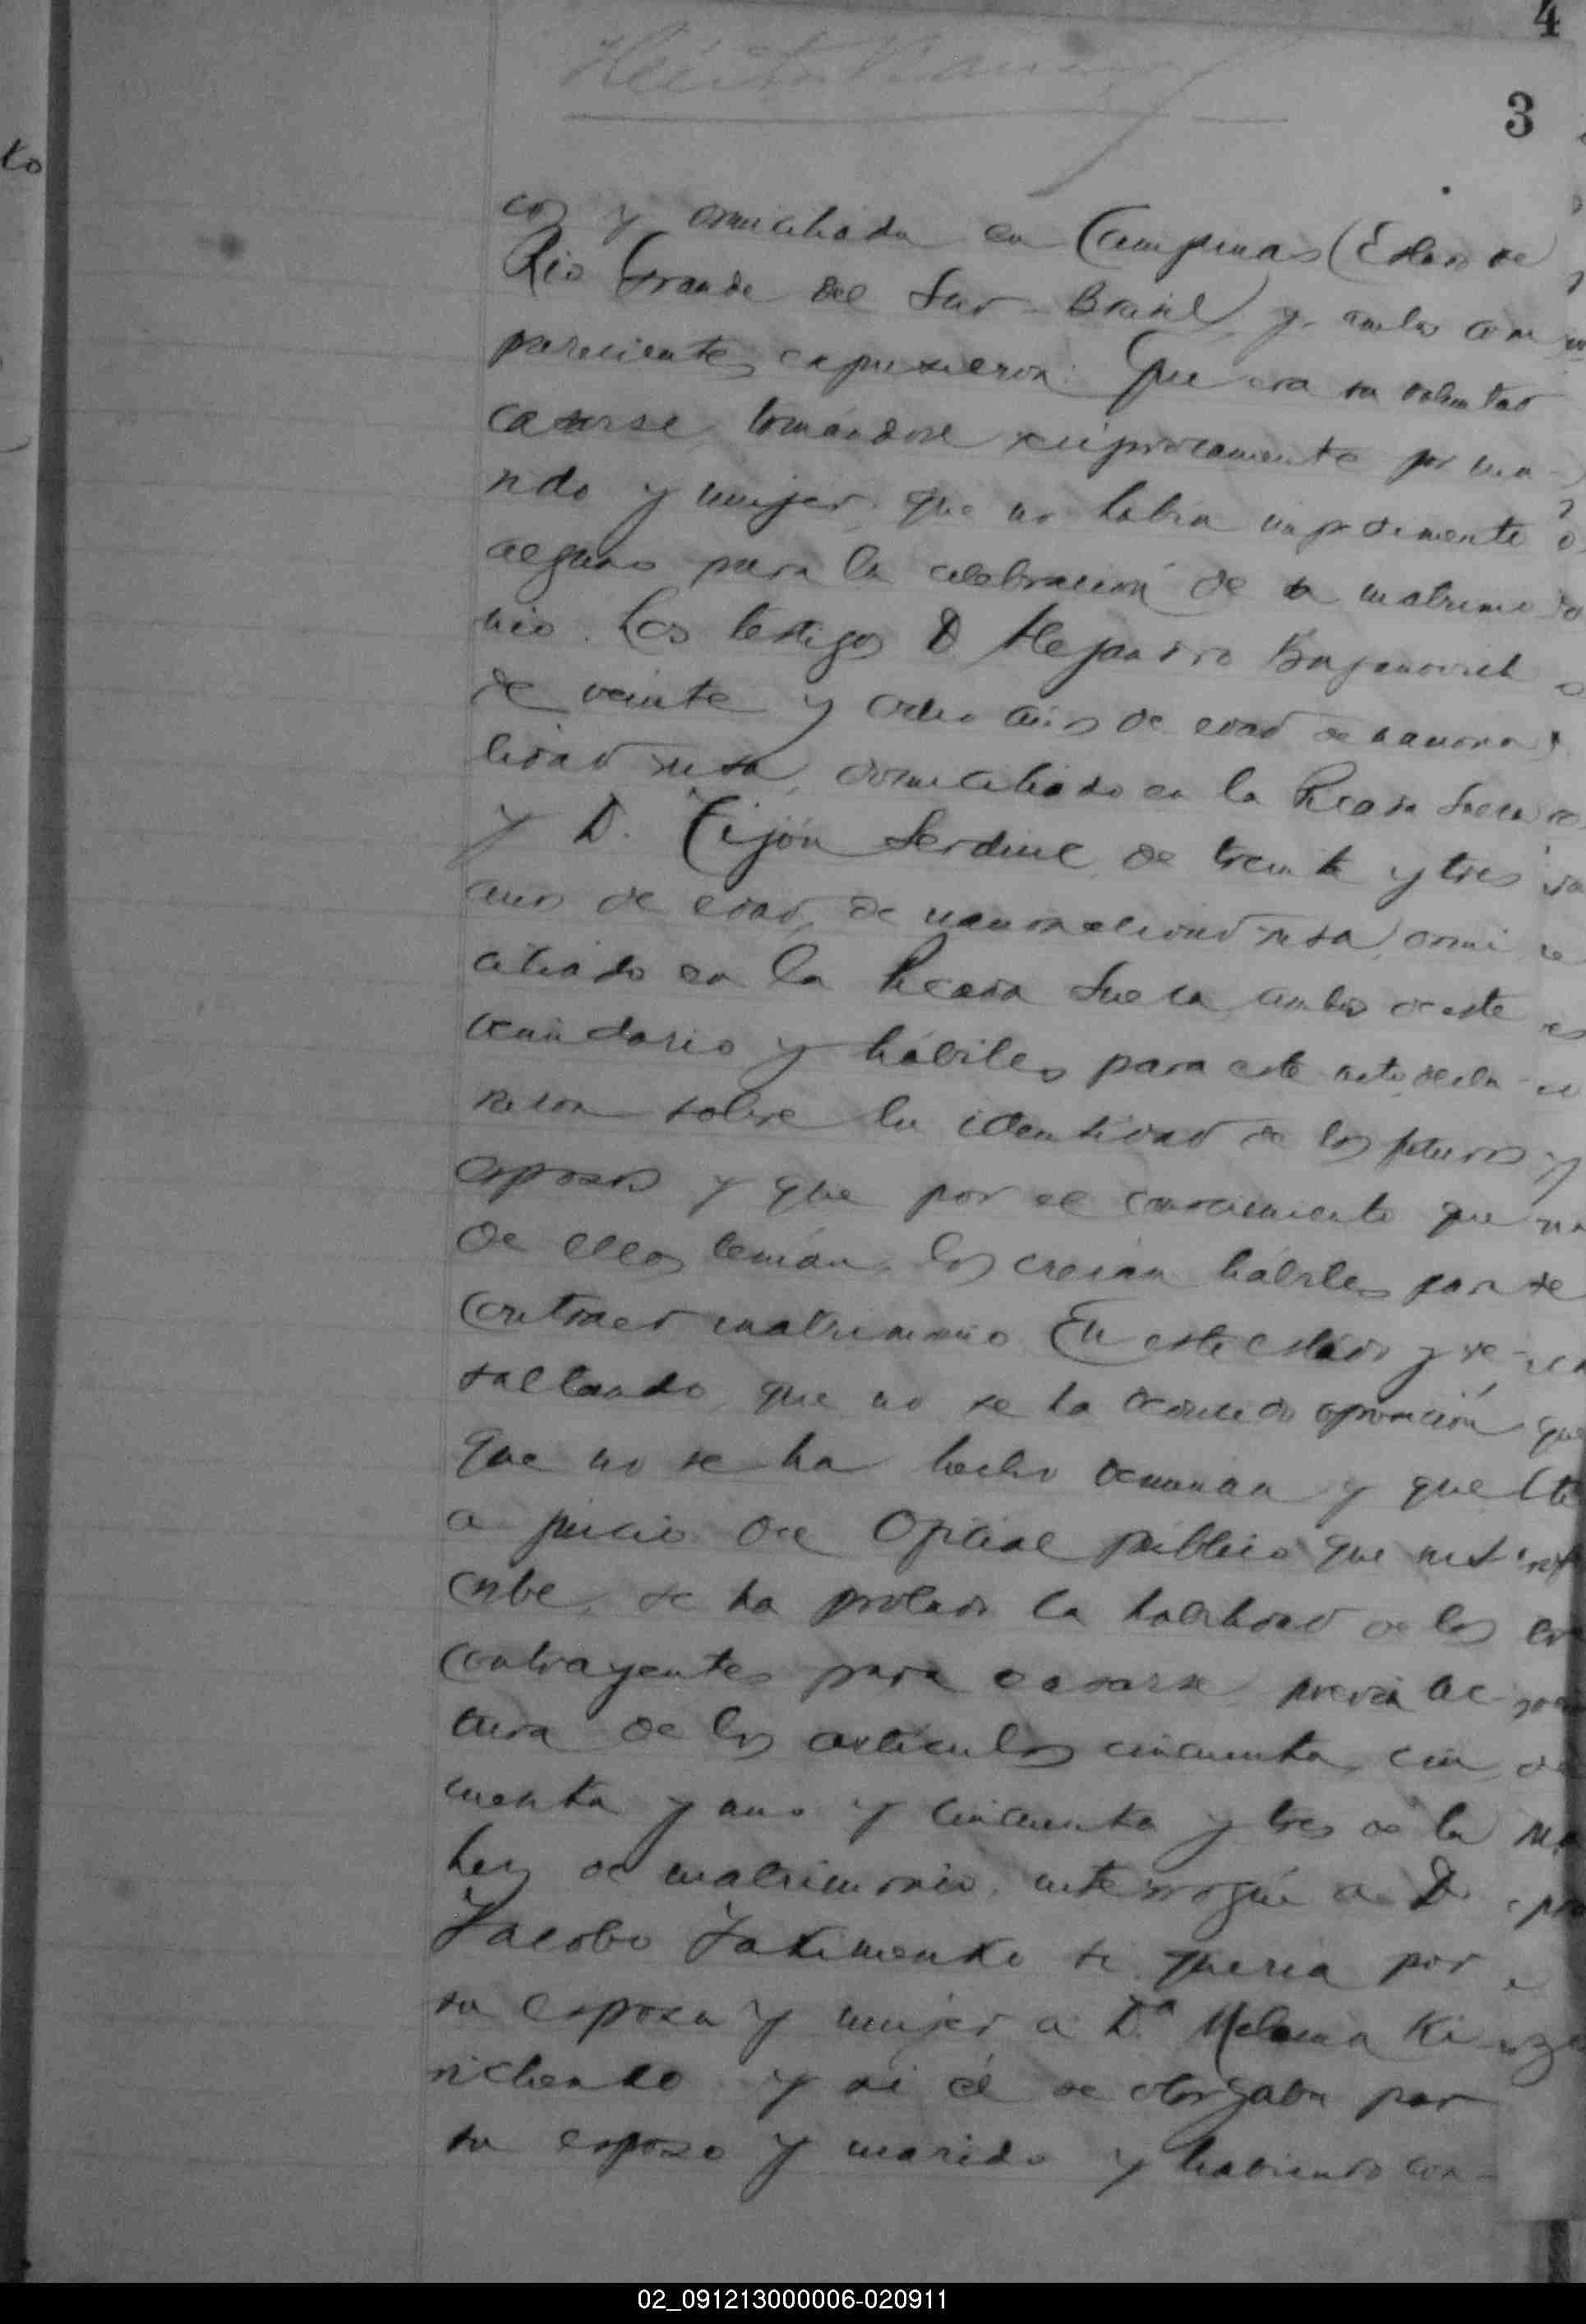 4
3
to
cos y domiciliada en Campinas (Estado de
Rio Grande del Sur - Brasil) y ambos com
parecientes expusieron: Que era su voluntad
casarse, tomándose recíprocamente por ma-
rido y mujer, que no había impedimento
alguno para la celebración de su matrimo
nio. Los testigos D. Alejandro
de veinte y ocho años de edad de naciona
lidad rusa, domiciliado en la Picada Sueca
y D. Tijón Serdiuc, de treinta y tres
años de edad, de nacionalidad rusa, domi
ciliado en la Picada Sueca ambos de este
vecindario y hábiles para este acto, decla
raron sobre la identidad de los futuros
esposos y que por el conocimiento que
de ellos tenían, los creían hábiles para
contraer matrimonio. En este estado y re-
sultando, que no se ha deducido oposición,
que no se ha hecho denuncia y que
a juicio del Oficial público que sus
cribe, se ha probado la habilidad de los
contrayentes para casarse, previa lec-
tura de los artículos cincuenta, cin
cuenta y uno y cincuenta y tres de la
ley de matrimonio, interrogué a D.
Jacobo si quería por
su esposa y mujer a D.ª Ki-
richenko y si él se otorgaba por
su esposo y marido y habiendo con-
02_091213000006-020911